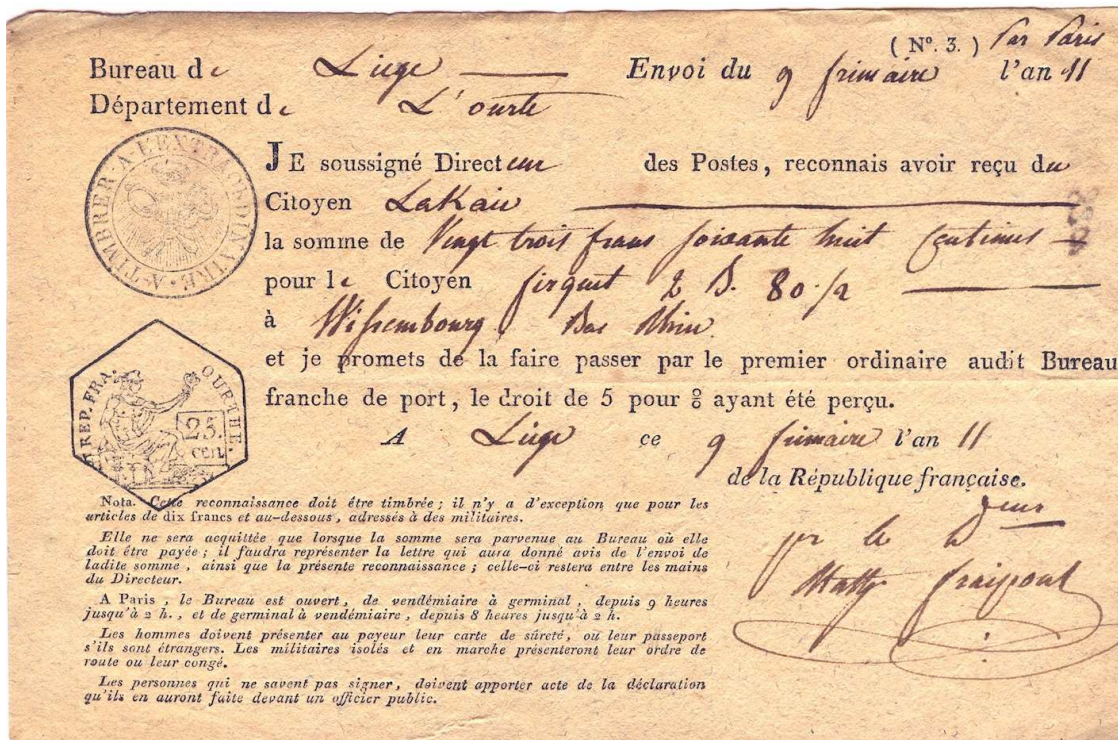 (N°. 3.) Par Paris
Bureau de Liege Envoi du 9 frimaire l'an 11
Département de L'ourte
JE soussigné Directeur des Postes, reconnais avoir reçu du
Citoyen Lakaie
la somme de Vingt trois frans soixante huit Centimes
pour le Citoyen 2 D. 80./2
à Wissembourg Bas Rhin
et je promets de la faire passer par le premier ordinaire audit Bureau
franche de port, le droit de 5 pour % ayant été perçu.
A Liege ce 9 frimaire l'an 11
de la République française.
A TIMBRER A L'EXTRAORDINAIRE
REP. FRA. OURTHE.
25. cen.
Nota. Cette reconnaissance doit être timbrée; il n'y a d'exception que pour les
articles de dix francs et au-dessous, adressés à des militaires.
Elle ne sera acquittée que lorsque la somme sera parvenue au Bureau où elle
doit être payée; il faudra représenter la lettre qui aura donné avis de l'envoi de
ladite somme, ainsi que la présente reconnaissance; celle-ci restera entre les mains
du Directeur.
A Paris, le Bureau est ouvert, de vendémiaire à germinal, depuis 9 heures
jusqu'à 2 h., et de germinal à vendémiaire, depuis 8 heures jusqu'à 2 h.
Les hommes doivent présenter au payeur leur carte de sûreté, ou leur passeport
s'ils sont étrangers. Les militaires isolés et en marche présenteront leur ordre de
route ou leur congé.
Les personnes qui ne savent pas signer, doivent apporter acte de la déclaration
qu'ils en auront faite devant un officier public.
pr le Dteur
fraipont